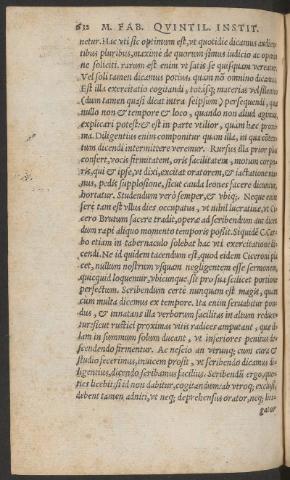 632 M. FAB. QVINTIL. INSTIT.
netur. Hac uti sic optimum est, ut quotidie dicamus audien
tibus pluribus, maximè de quorum simus iudicio ac opinio
ne soliciti. rarum est enim ut satis se quisquam vereatur.
Vel soli tamen dicamus potius quam nō omnino dicamus.
Est illa exercitatio cogitandi, totasq; materias vel silentio
(dum tamen quasi dicat intra seipsum) persequendi, quæ
nulla non & tempore & loco, quando non aliud agimus,
explicari potest: & est in parte vtilior, quàm hæc proxi-
ma. Diligentius enim componitur quàm illa, in qua contex
tum dicendi intermittere veremur. Rursus illa prior plus
confert, vocis firmitatem, oris facilitatem, motum corpo-
ris, qui & ipse, vt dixi, excitat oratorem, & iactatione ma-
nus, pedis supplosione, sicut cauda leones facere dicuntur,
hortatur. Studendum verò semper, & vbiq;. Neque enim
ferè tam est vllus dies occupatus, vt nihil lucratiuæ, vt Ci-
cero Brutum facere tradit, operæ ad scribendum aut dicen
dum rapi aliquo momento temporis possit. Siquidē C. Car-
bo etiam in tabernaculo solebat hac vti exercitatione di-
cendi. Ne id quidem tacendum est, quod eidem Ciceroni pla
cet, nullum nostrum vsquam negligentem esse sermonem,
quicquid loquemur, vbicunque sit pro sua scilicet portione
perfectum. Scribendum certè nunquam est magis, quàm
cum multa dicemus ex tempore. Ita enim seruabitur pon-
dus, & innatans illa verborum facilitas in altum reduce-
tur: sicut rustici proximas vitis radices amputant, quæ il-
lam in summum solum ducunt, vt inferiores penitus de-
scendendo firmentur. Ac nescio an vtrunq; cum cura &
studio fecerimus, inuicem prosit, vt scribendo dicamus di-
ligentius, dicendo scribamus facilius. Scribendū ergo, quo-
ties licebit: si id non dabitur, cogitandum: ab vtroq; exclusi,
debent tamen adniti, vt neq; deprehensus orator, neq; liti-
gator